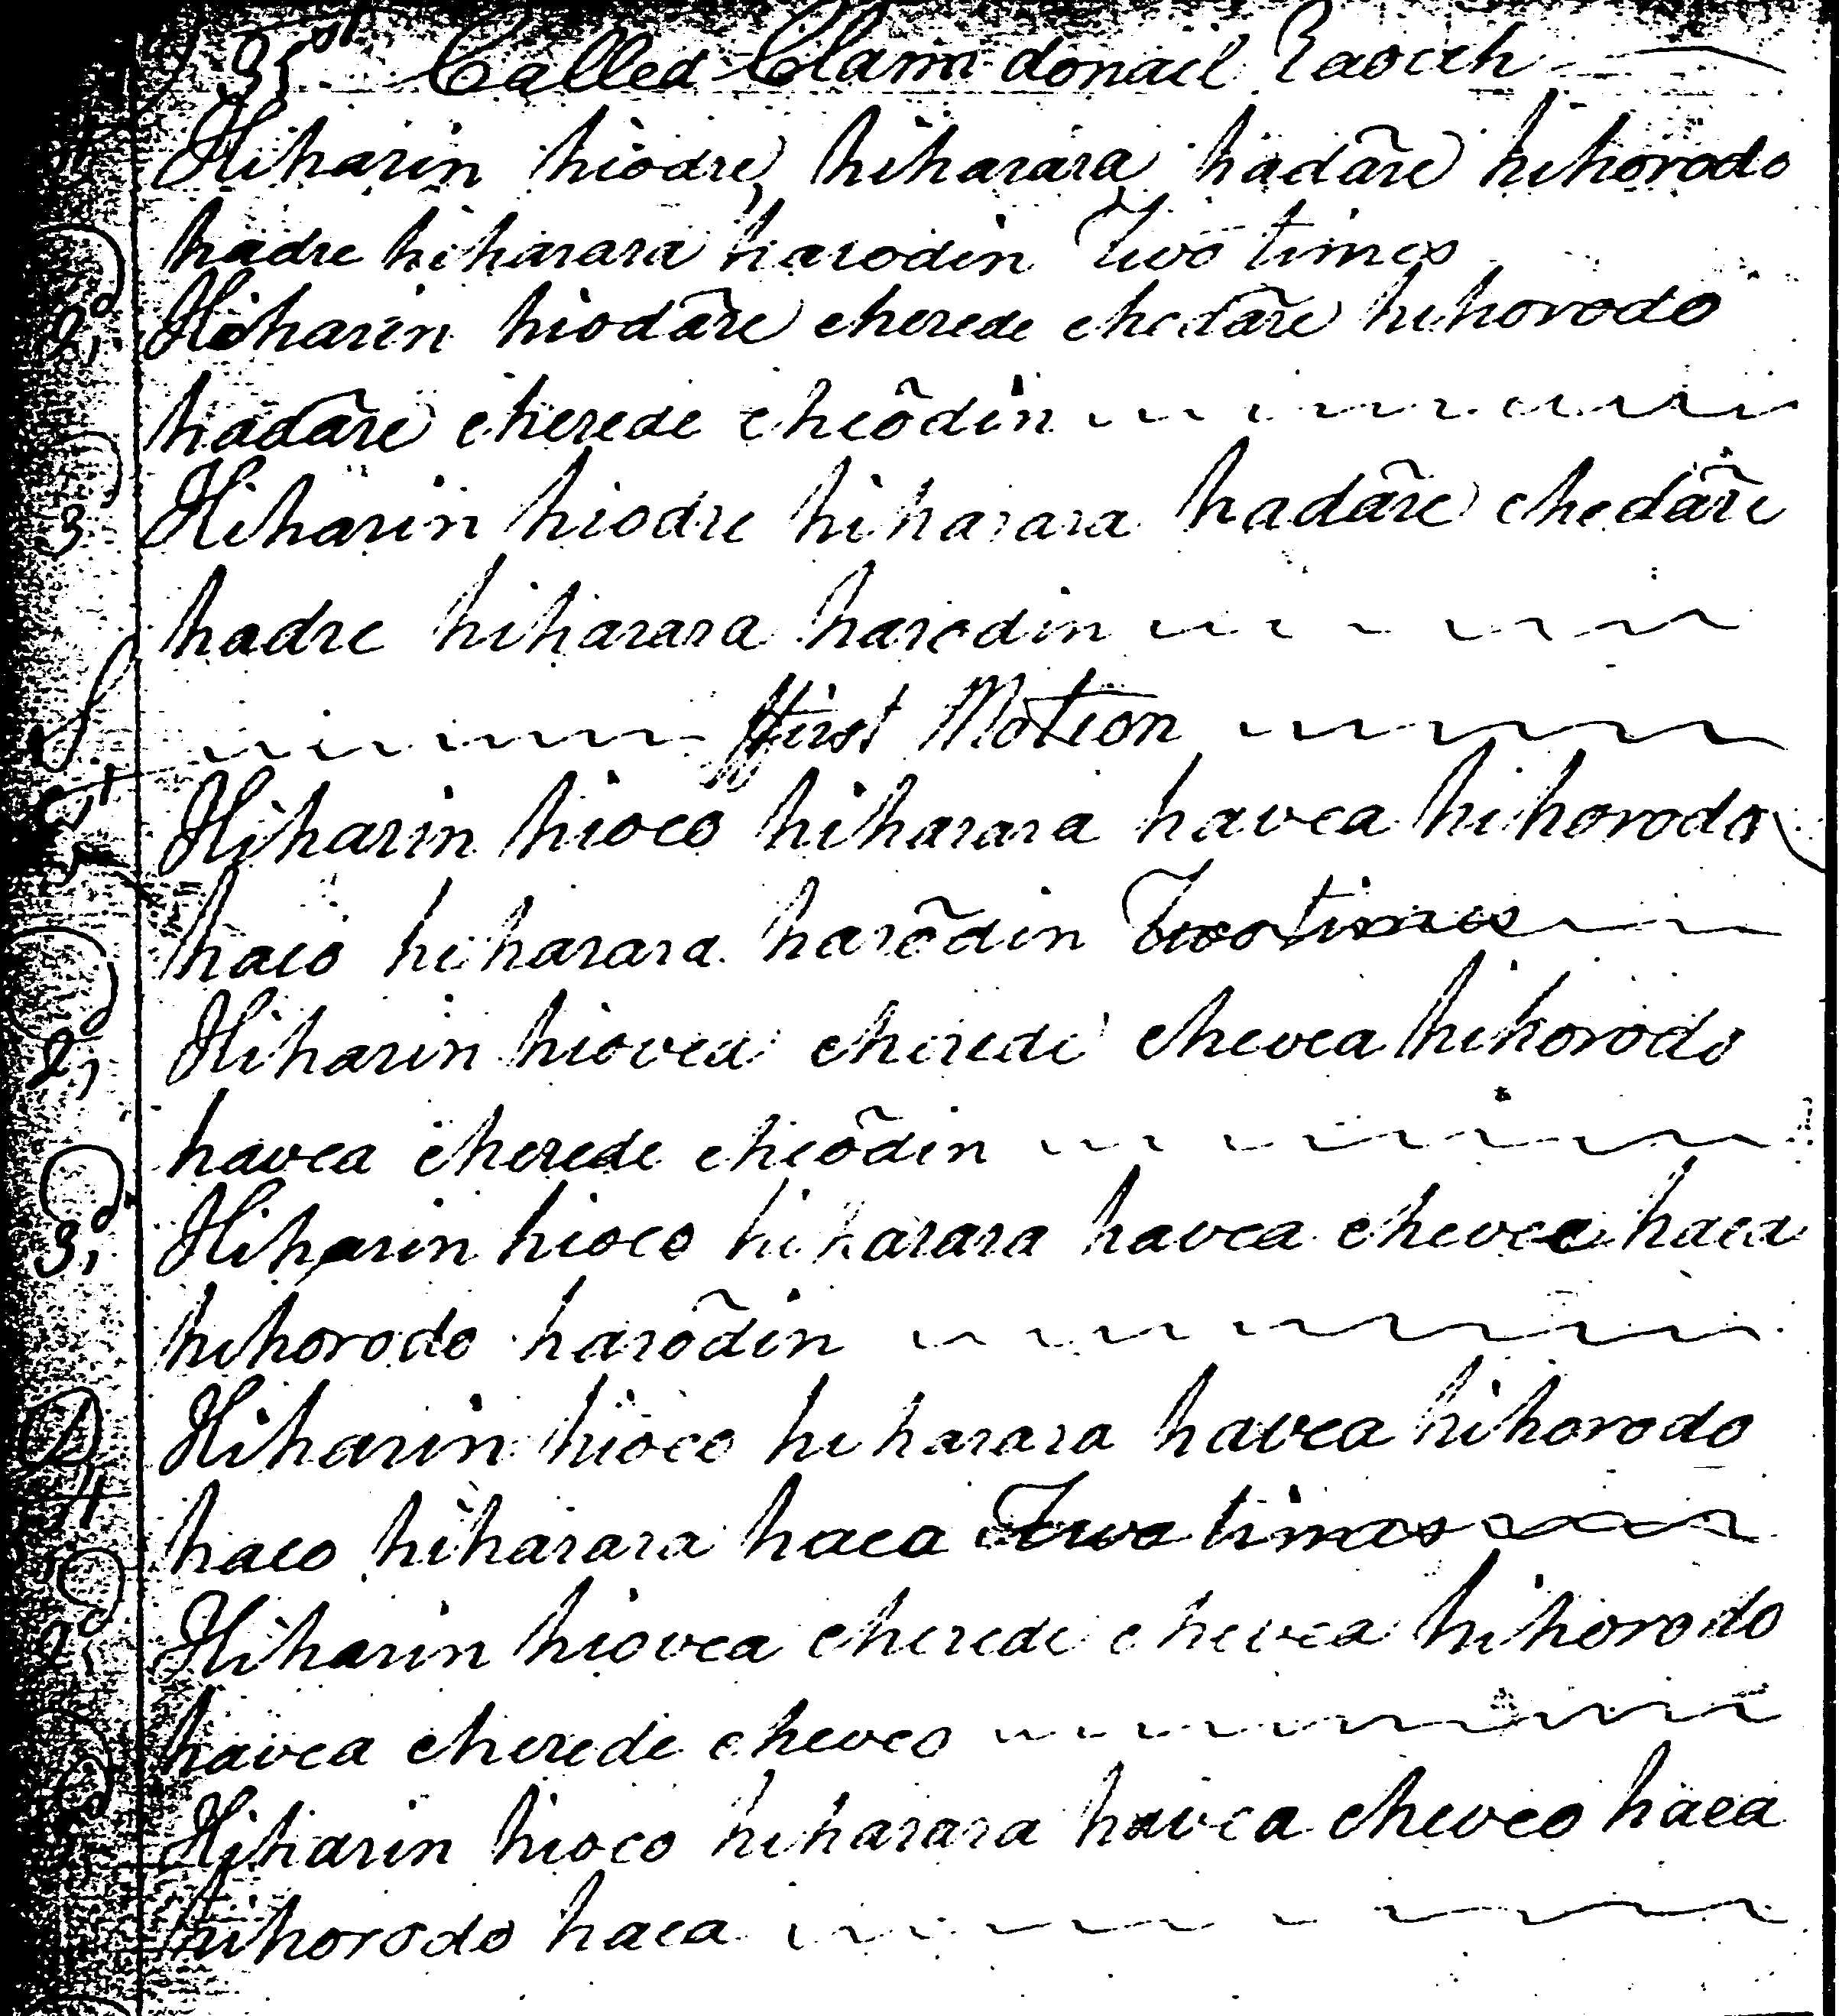 Called Clann donail Raoich
Hiharin hiodre hiharara hadãre hihorodo
hadre hiharara harodin Two times
2d Hiharin hiodãre cherede chedãre hihorodo
hadãre cherede cheõdin
3 Hiharin hiodre hiharara hadãre chedãre
hadre hiharara harodin
ffirst Motion
Hiharin hioeo hiharara havea hihorodo
haeo hiharara harõdin Two times
2d Hiharin hiovea cherede chevea hihorodo
havea cherede cheõdin
3d Hiharin hioeo hiharara havea chevea haea
hihorodo harõdin
D Hiharin hioeo hiharara havea hihorodo
haeo hiharara haea Two times
2d Hiharin hiovea cherede chevea hihorodo
havea cherede cheveo
Hiharin hioeo hiharara havea cheveo haea
hihorodo haea